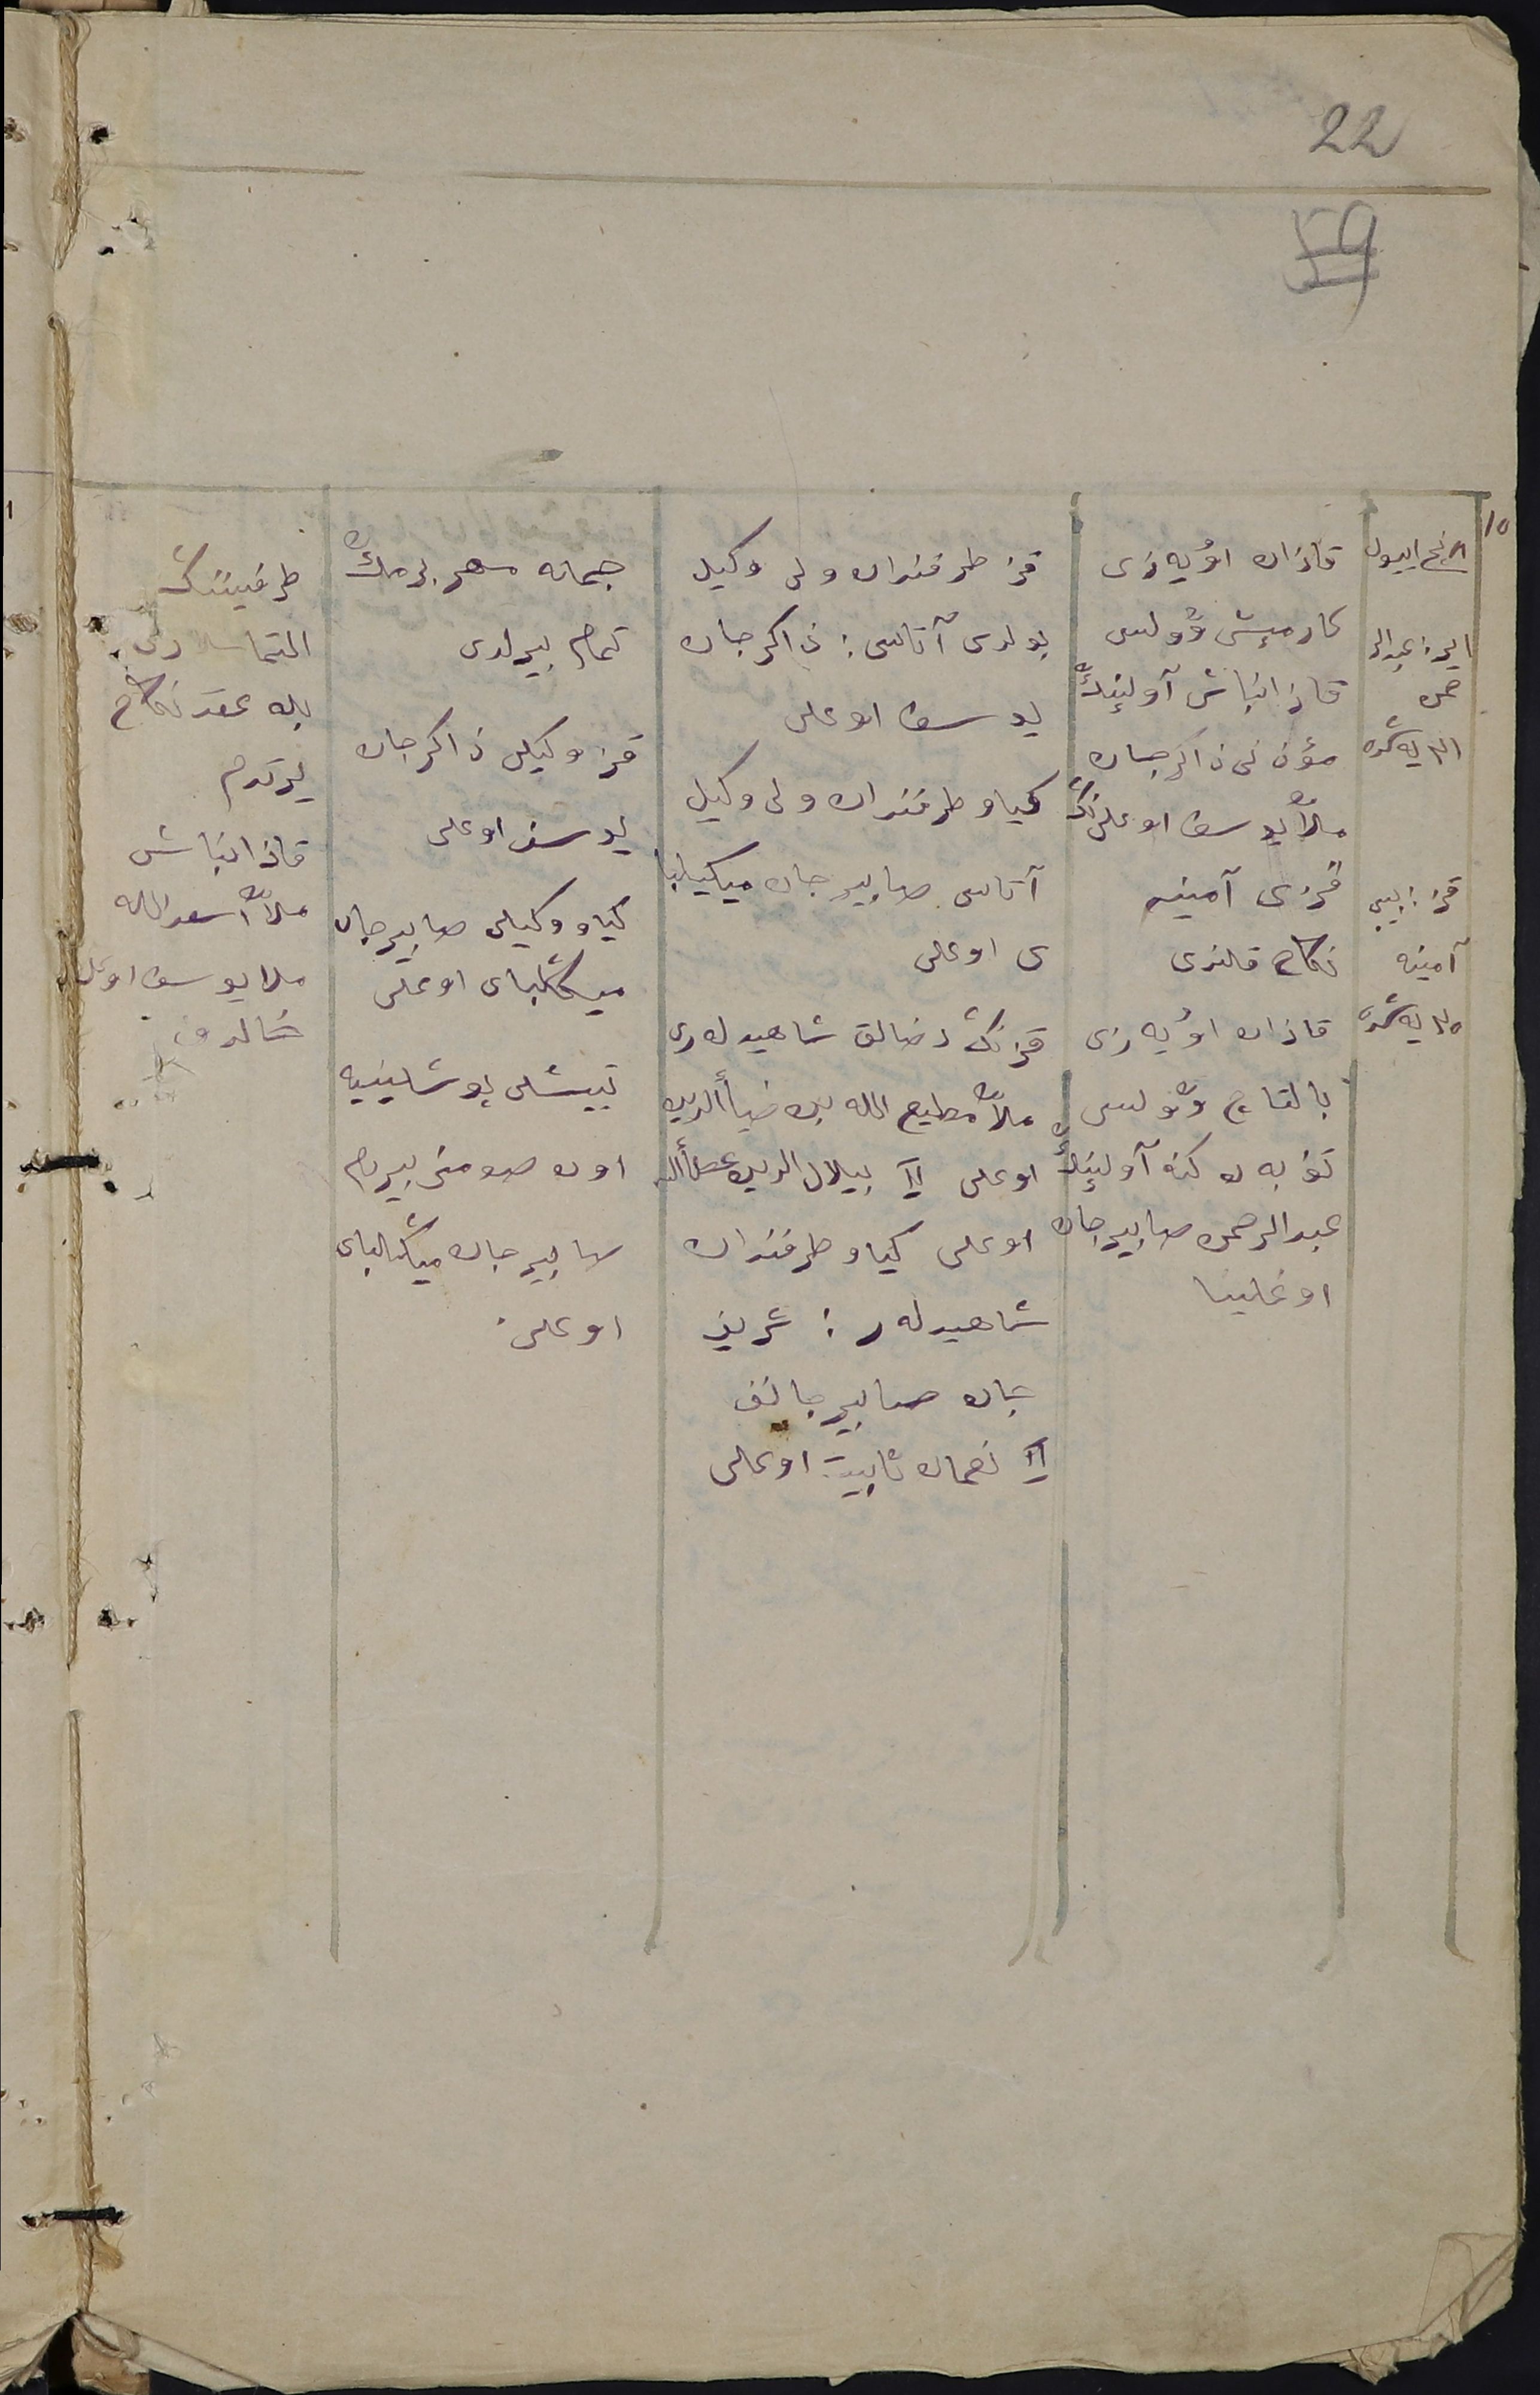 22
59
١٥
نجی اییول
ایر: عبدالر
حمن
یه‌شده
قز: بیبی
آمینه
یه‌شده
قازان اۇیه‌زی
كارمیش ۋۇلسی
قاز انباش آولینڭ
مؤذنی ذاكرجان
ملا یوسف اوغلی نڭ
قزی آمینه
نكاح قلندی
قازان اۇیه‌زی
بالتاچ ۋۇلسی
آولینڭ
عبدالرحمن صابیرجان
اوغلینا
قز طرفندان ولی وكیل
بولدی آتاسی: ذاكرجان
یوسف اوغلی
كیاو طرفندان ولی وكیل
آتاسی صابیرجان میكیلبا
ی اوغلی
قزنڭ رضالق شاهیدله‌ری
ملا مطیع الله بن ضیأالدین
اوغلی II بیلال الدین عطأالله
اوغلی كیاو طرفندان
شاهیدله‌ر: شریف
جان صابیرجانف
II نعمان ثابیت اوغلی
جمله مهر برمك
تمام بیرلدی
قز وكیلی ذاكرجان
یوسف اوغلی
كیاو وكیلی صابیرجان
میكلبای اوغلی
تییشلی پوشلینیه
اون صومنی بیردم
صابیرجان میكلبای
اوغلی
طرفیننڭ
التماسلاری
بله عقد نكاح
یرتدم
قازانباش
ملا اسعدالله
ملا یوسف اوغلی
خالدوف